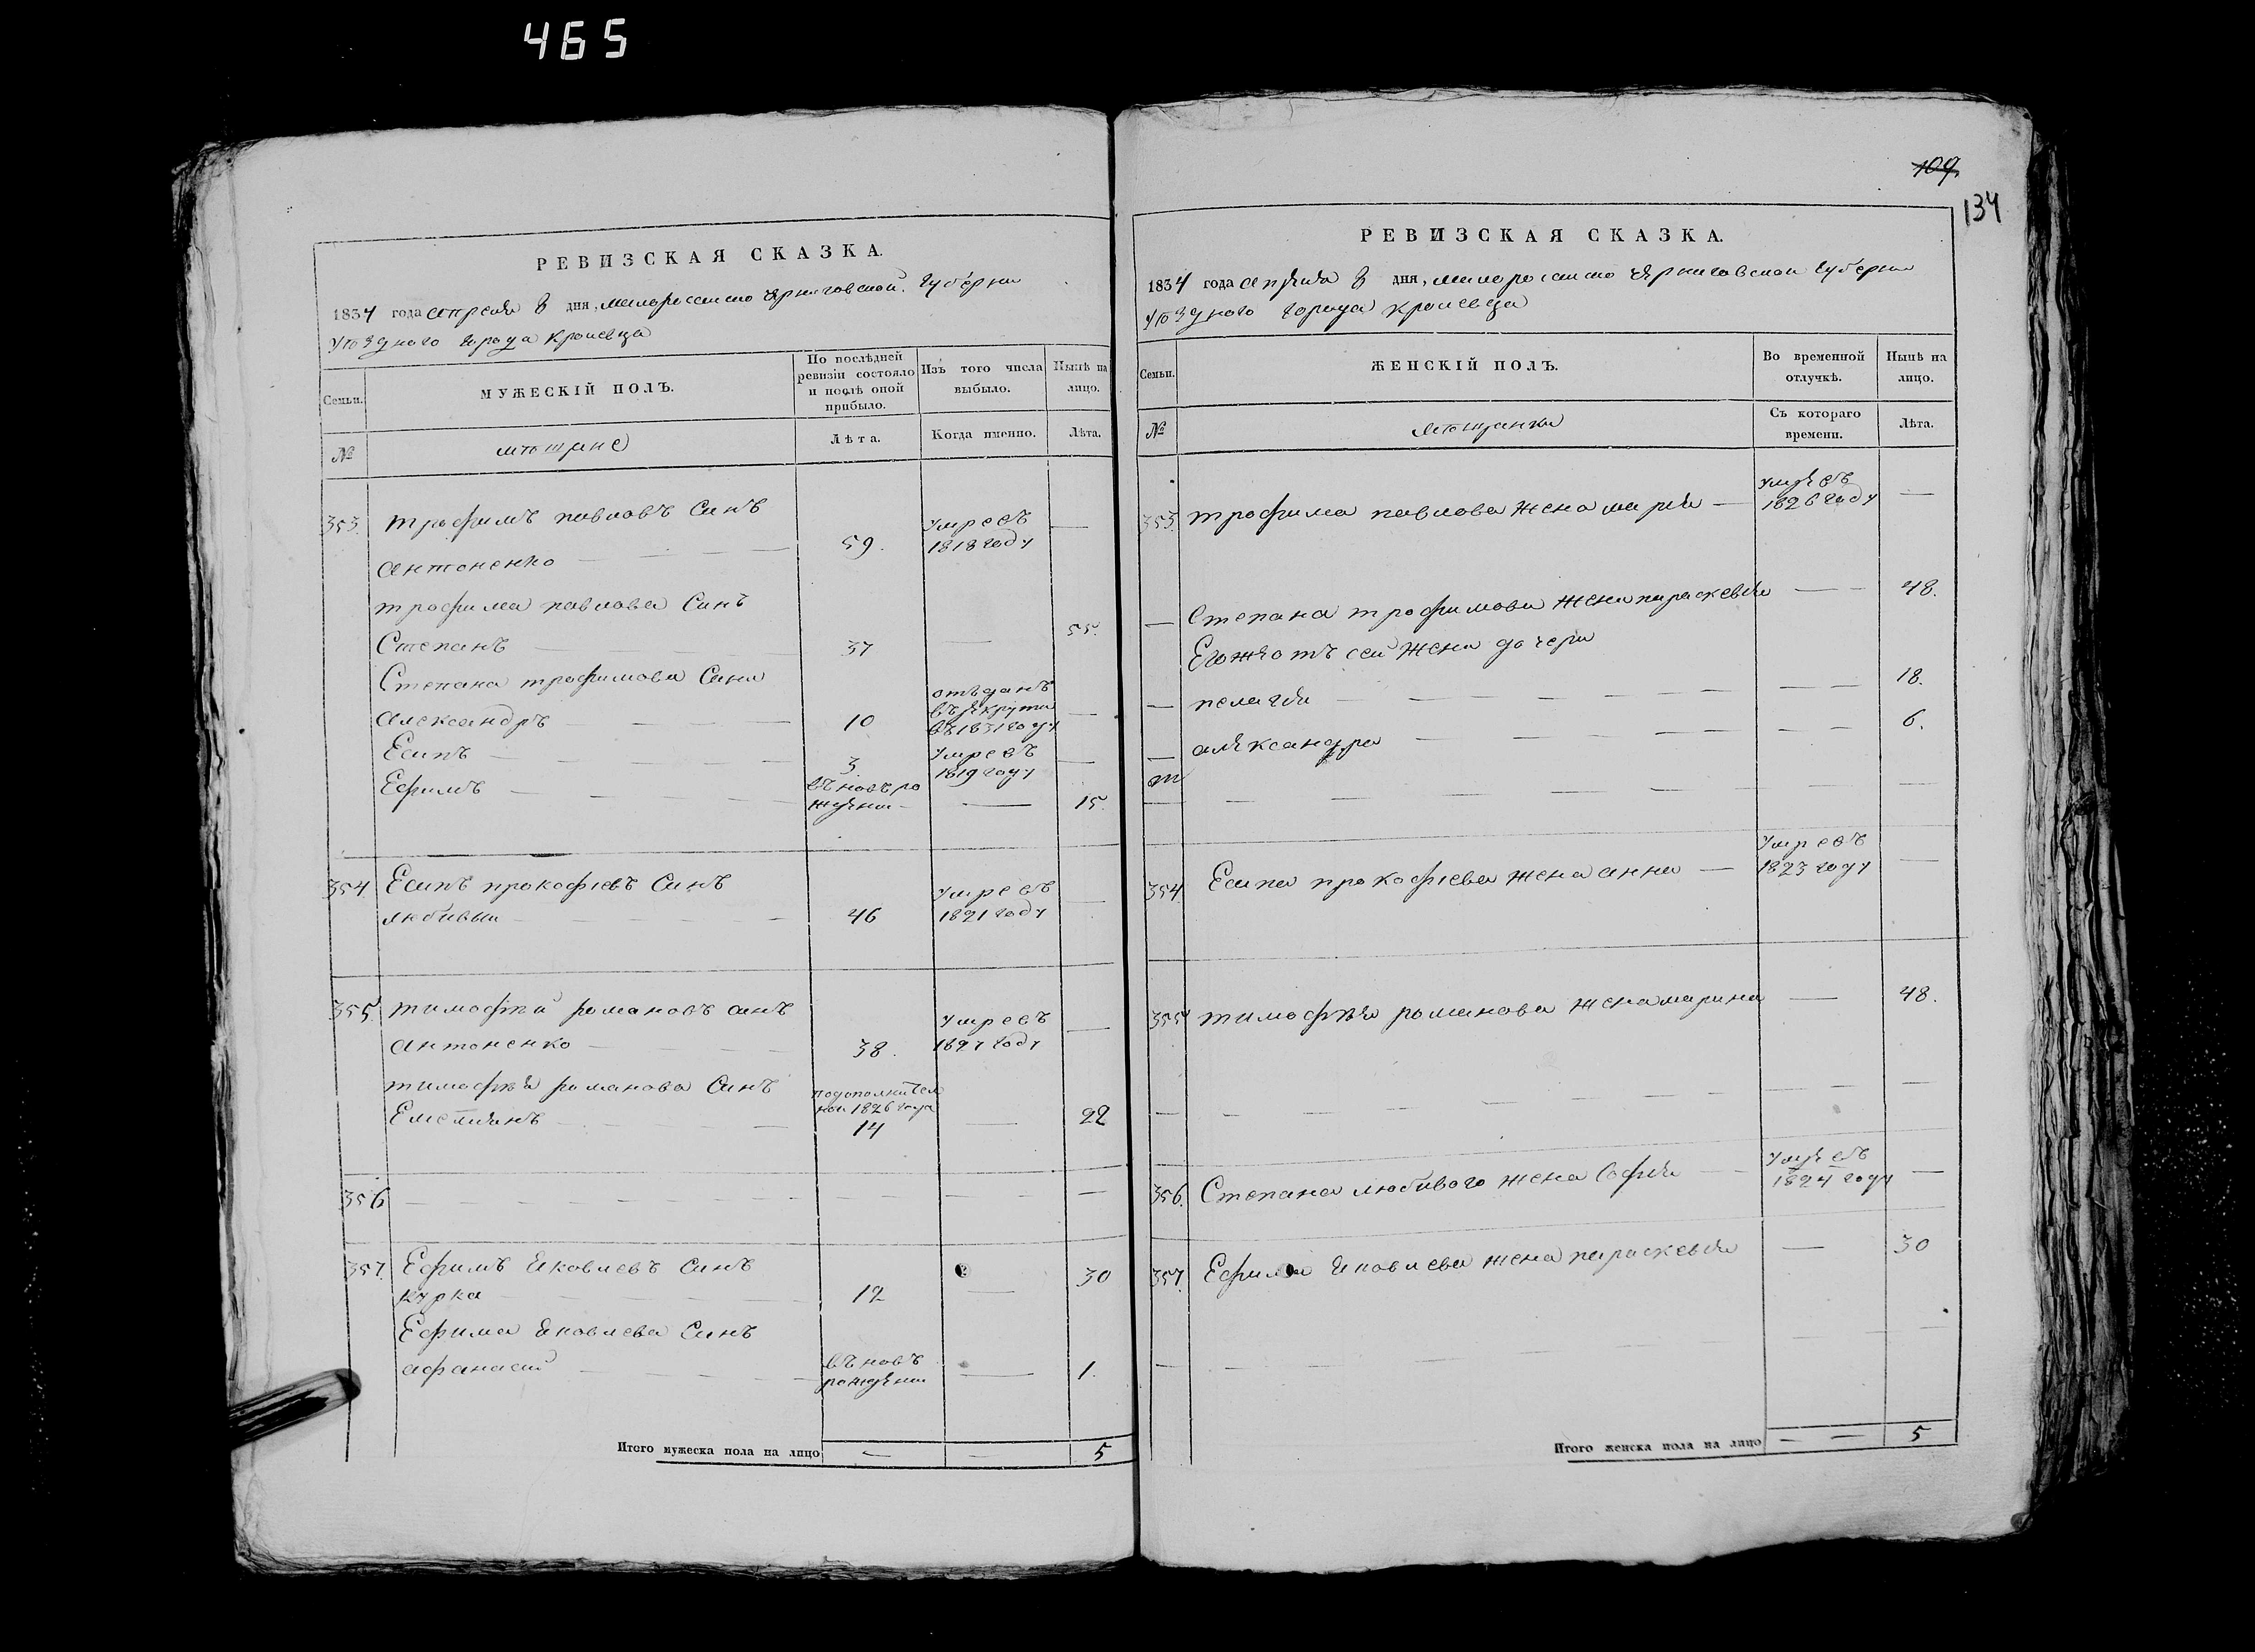 465
РЕВИЗСКАЯ СКАЗКА.
1834 года апреля 8 дня, малороссиско черниговской губернии
уѣзднаго города кролевца
Семьи.
МУЖЕСКІЙ ПОЛЪ.
По послѣдней ревизіи состояло и послѣ оной прибыло.
Изъ того числа выбыло.
Нынѣ на лицо.
№
мѣщане
Лѣта.
Когда именно.
Лѣта.
353. трофимъ павловъ Синъ
антоненко — 59. Умревъ 1818 году —
трофима павлова Синъ
Степанъ — 37 — 55.
Степана трофимова Сини
александръ — 10 отъданъ въ рекрути въ 1831 году —
Есипъ — 3. Умревъ 1819 году —
Ефимъ — въ новъ рождении — — 15.
354. Есипъ прокофіевъ Синъ
любивии — 46 Умревъ 1821 году —
355. тимофѣй романовъ синъ
антоненко — 38. Умревъ 1827 году —
тимофѣя романова Синъ
Емелиянъ — подополнител ной 1826 года 14 — 22
356 — — — —
357. Ефимъ Яковлевъ Синъ
курка — 12 — 30
Ефима Яковлева Синъ
афанасий — въ новъ рождении — 1.
Итого мужеска пола на лицо — — 5
109.
134
РЕВИЗСКАЯ СКАЗКА.
1834 года апреля 8 дня, малороссиско черниговской губернии
уѣзднаго города кролевца
Семьи.
ЖЕНСКІЙ ПОЛЪ.
Во временной отлучкѣ.
Нынѣ на лицо.
№
мѣщанки
Съ котораго времени.
Лѣта.
353. трофима павлова жена мария — умревъ 1826 году —
— Степана трофимова жена параскевия — 48.
Его же отъ сей жени дочери
— пелагия — — 18.
— александра — — 6.
— — — —
354 Есипа прокофіева жена анна — Умревъ 1823 году —
355 тимофѣя романова жена марина — 48.
— — — —
356. Степана любивого жена София — Умревъ 1824 году —
357. Ефима Яковлева жена параскевия — 30
— — — —
Итого женска пола на лицо — — 5